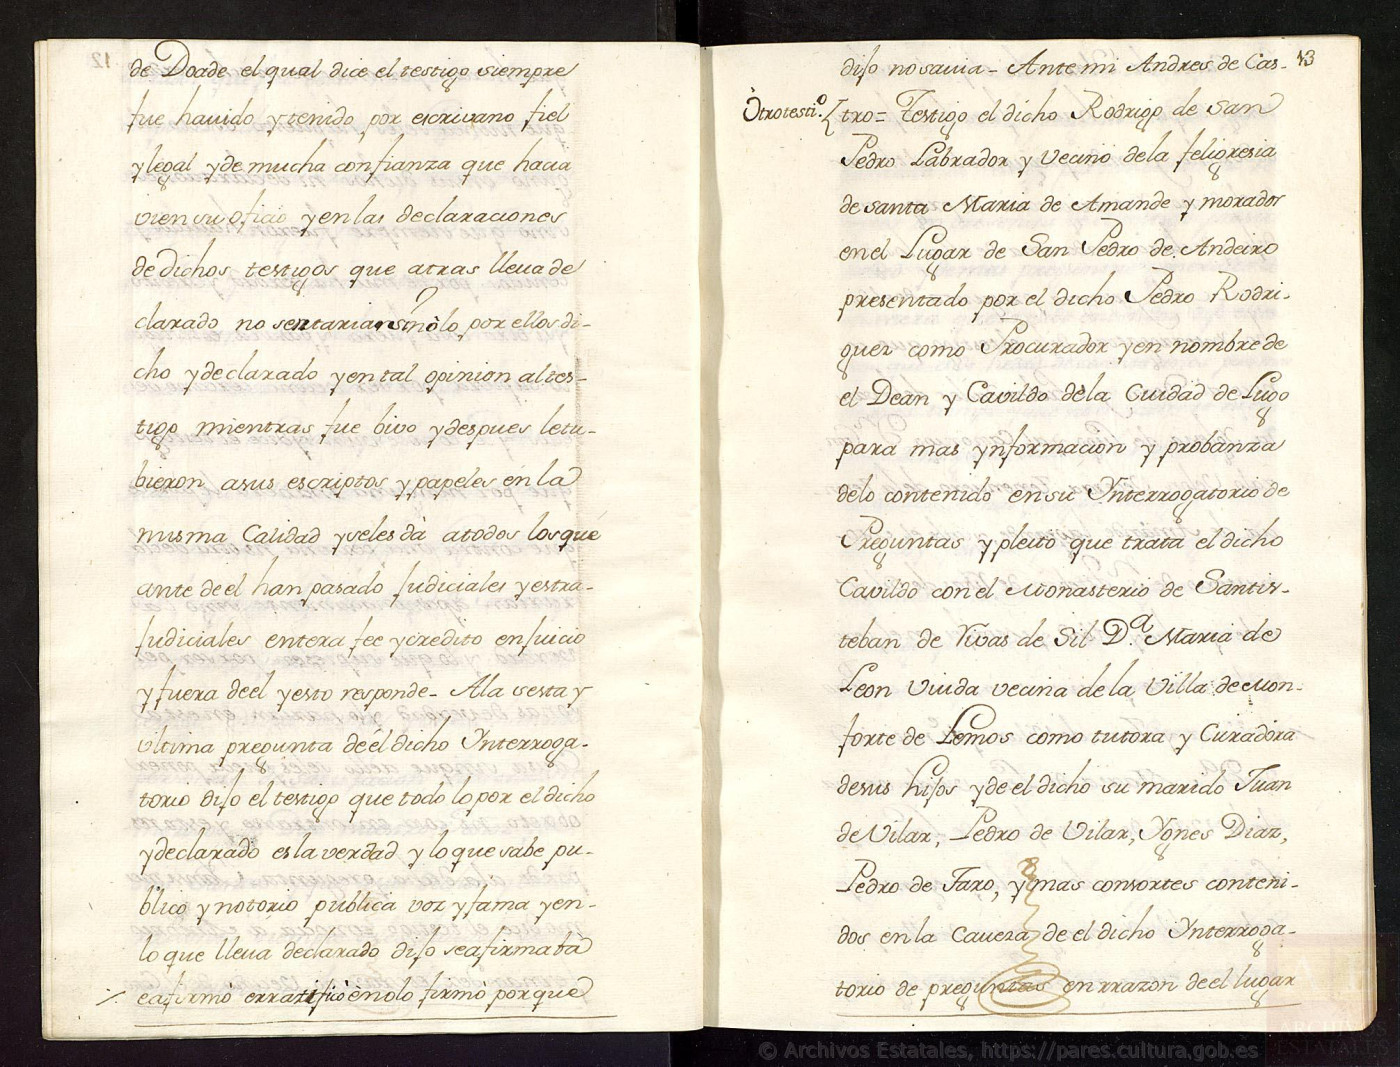 12
de Doade el qual dice el testigo siempre
fue hauido y tenido por escrivano fiel
y legal y de mucha confianza que hacia
vien su oficio y en las declaraciones
de dichos testigos que atras lleua de
clarado no sentarian sinòlo por ellos di-
cho y declarado y en tal opinion al tes-
tigo mientras fue bivo y despues le tu-
bieron a sus escriptos y papeles en la
misma Calidad y se les dà a todos los que
ante de el han pasado Judiciales y estra-
Judiciales entera fee y credito en Juicio
y fuera de el y esto responde - A la sesta y
ultima pregunta de él dicho Ynterroga-
torio dijo el testigo que todo lo por el dicho
y declarado es la verdad y lo que sabe pu-
blico y notorio publica voz y fama y en-
lo que lleua declarado dijo se afirmaba
eafirmò erratificò è no lo firmò porque
13
dijo no savia - Ante mi Andres de Cas-
Otro testi.º { tro = Testigo el dicho Rodrigo de San
Pedro Labrador y vecino de la feligresia
de santa Maria de Amande y morador
en el Lugar de San Pedro de Andeiro
presentado por el dicho Pedro Rodri-
guez como Procurador y en nombre de
el Dean y Cavildo de la Cuidad de Lugo
para mas ynformacion y probanza
de lo contenido en su Ynterrogatorio de
Preguntas y pleito que trata el dicho
Cavildo con el Monasterio de Santis-
teban de Rivas de Sil D.ª Maria de
Leon viuda vecina de la Villa de Mon-
forte de Lemos como tutora y Curadora
de sus hijos y de el dicho su marido Juan
de Vilar, Pedro de Vilar, Ygnes Diaz,
Pedro de Faro, y mas consortes conteni-
dos en la Caveza de el dicho Ynterroga-
torio de preguntas en rrazon de el lugar
© Archivos Estatales, https://pares.cultura.gob.es